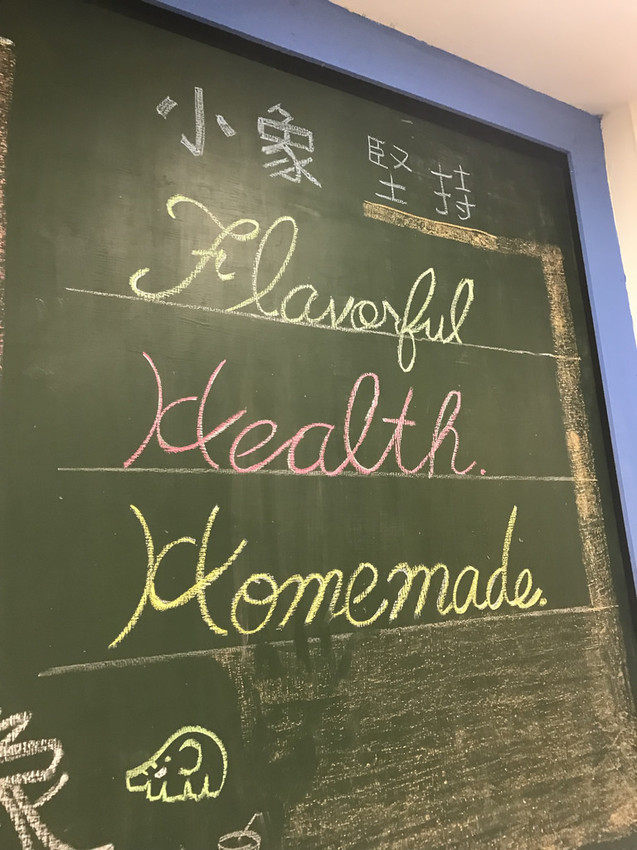 小象 堅持
Flavorful
Health.
Homemade.
象